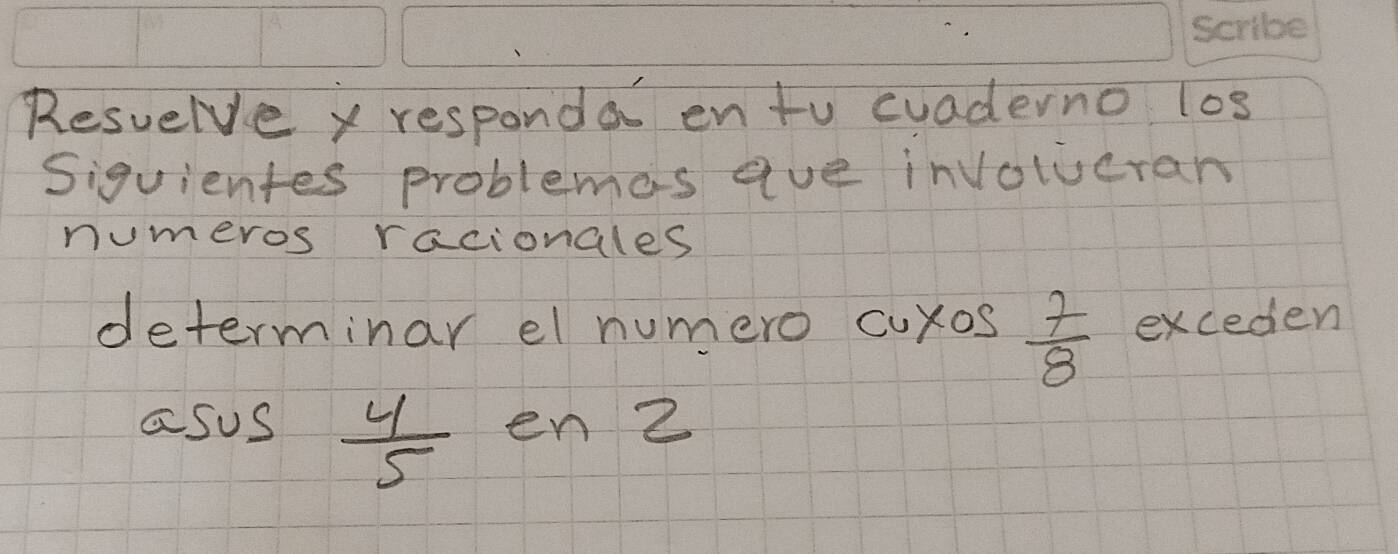 Scribe
Resuelve y responda en tu cuaderno los
Siguientes problemas que involucran
numeros racionales
determinar el numero cuyos 7/8 exceden
asus 4/5 en 2